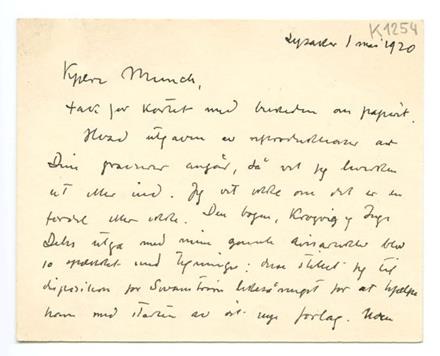 K1254
Lysaker 1 mai 1920
Kjære Munch,
tak for kortet med beskeden om papiret.
Hvad utgaven av reproduktioner av
Dine gravurer angår, så vet jeg hverken
ut eller ind. Jeg vet ikke om det er en
fordel eller ikke. Den bogen, Krogvig og
utga med mine gamle blev
så med tegninger: disse stillet jeg til
disposition for Swanström for at hjælpe
ham med starten av sit nye forlag. Noen